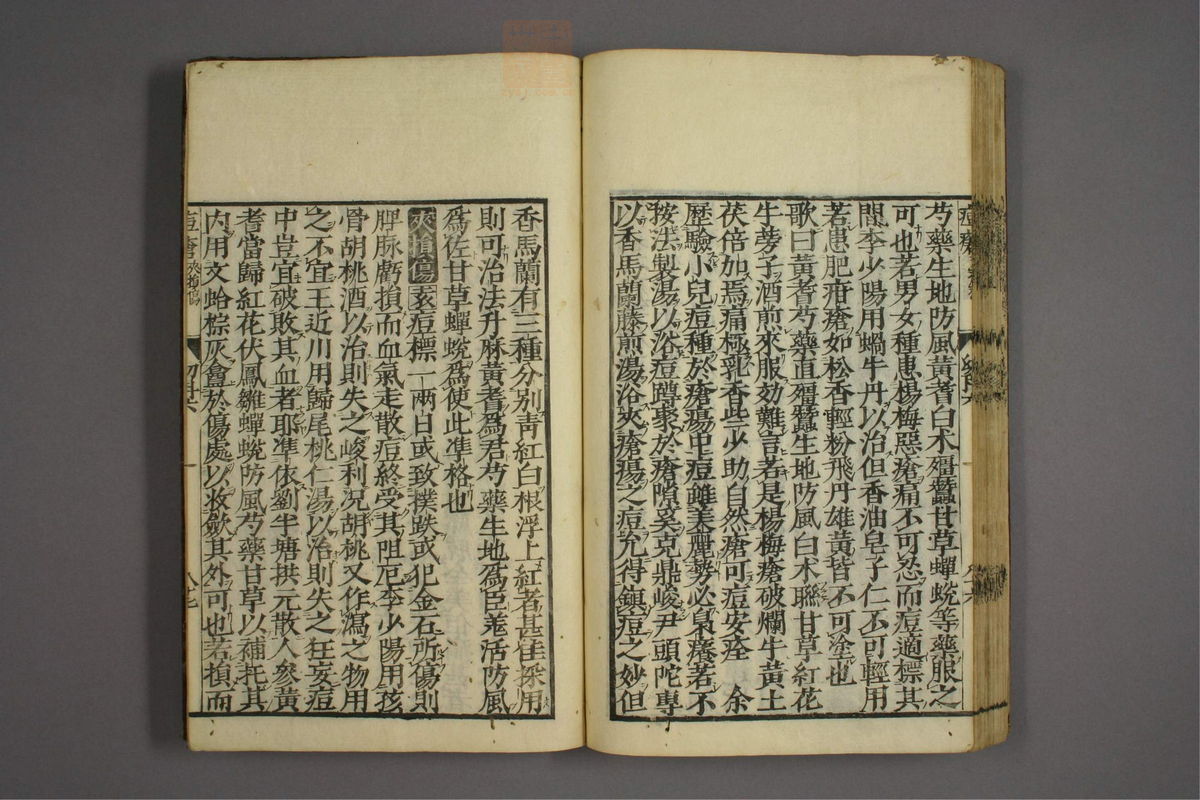 芍藥生地防風黃蓍白朮殭蠶甘草蟬蛻等藥服之
可也若男女種患楊梅惡瘡痛不可忍而痘適標其
間李少陽用蝸牛丹以治但香油皂子仁不可輕用
若患肥疳瘡如松香輕粉飛丹雄黃皆不可塗也
歌曰黃蓍芍藥直殭蠶生地防風白朮聯甘草紅花
牛蒡子酒煎來服効難言若是楊梅瘡破爛牛黃土
茯倍加焉痛極乳香些少助自然瘡可痘安全 余
歷驗小兒痘種於瘡瘍中痘雖美麗勢必梟癢若不
按法製湯以浴痘蹲聚於瘡隙奚克鼎峻尹頭陀專
以香馬蘭藤煎湯浴夾瘡瘍之痘允得鎮痘之妙但
香馬蘭有三種分別靑紅白根浮上紅者甚佳採用
則可治法升麻黃蓍爲君芍藥生地爲臣羗活防風
爲佐甘草蟬蛻爲使此準格也
夾損傷 痘標一兩日或致撲跌或犯金石所傷則
脾脉虧損而血氣走散痘終受其阻厄李少陽用孩
骨胡桃酒以治則失之峻利况胡桃又作瀉之物用
之不宜王近川用歸尾桃仁湯以治則失之狂妄痘
中豈宜破敗其血者耶準依劉半塘拱元散人參黃
蓍當歸紅花伏鳳雛蟬蛻防風芍藥甘草以補托其
內用文蛤棕灰㑹於傷處以收斂其外可也若損而